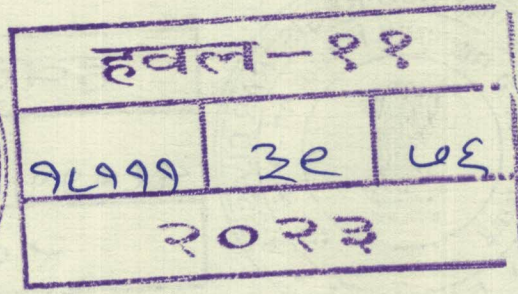 हवल-११
१८१११ ३९ ७६
२०२३